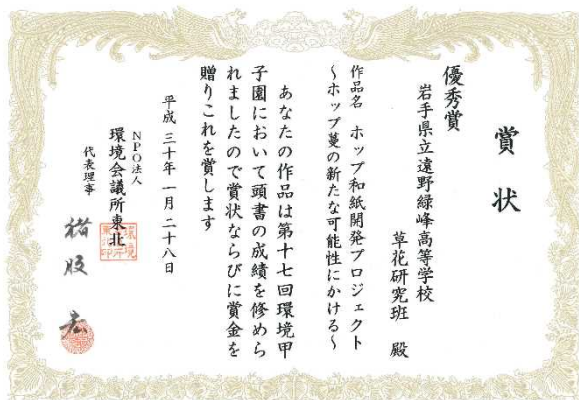 賞状
優秀賞
岩手県立遠野緑峰高等学校
草花研究班 殿
作品名 ホップ和紙開発プロジェクト
～ホップ蔓の新たな可能性にかける～
あなたの作品は第十七回環境甲
子園において頭書の成績を修めら
れましたので賞状ならびに賞金を
贈りこれを賞します
平成三十年一月二十八日
NPO法人
環境会議所東北
代表理事
猪股 宏